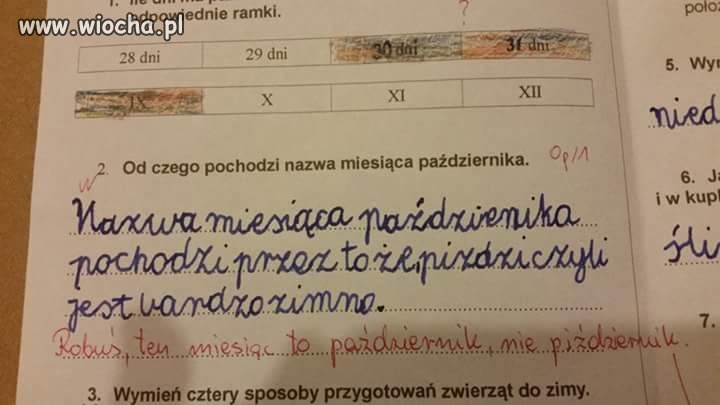 www.wiocha.pl
1. Ile dni ma
odpowiednie ramki.
?
28 dni 29 dni 30 dni 31 dni
IX X XI XII
2. Od czego pochodzi nazwa miesiąca października.
0p/1
Nazwa miesiąca paździenika
pochodzi przez to że, piździ czyli
jest bardzo zimno.
Robuś, ten miesiąc to październik, nie piździernik.
3. Wymień cztery sposoby przygotowań zwierząt do zimy.
poło
5. Wy
nied
6. J
i w kup
śli
7.